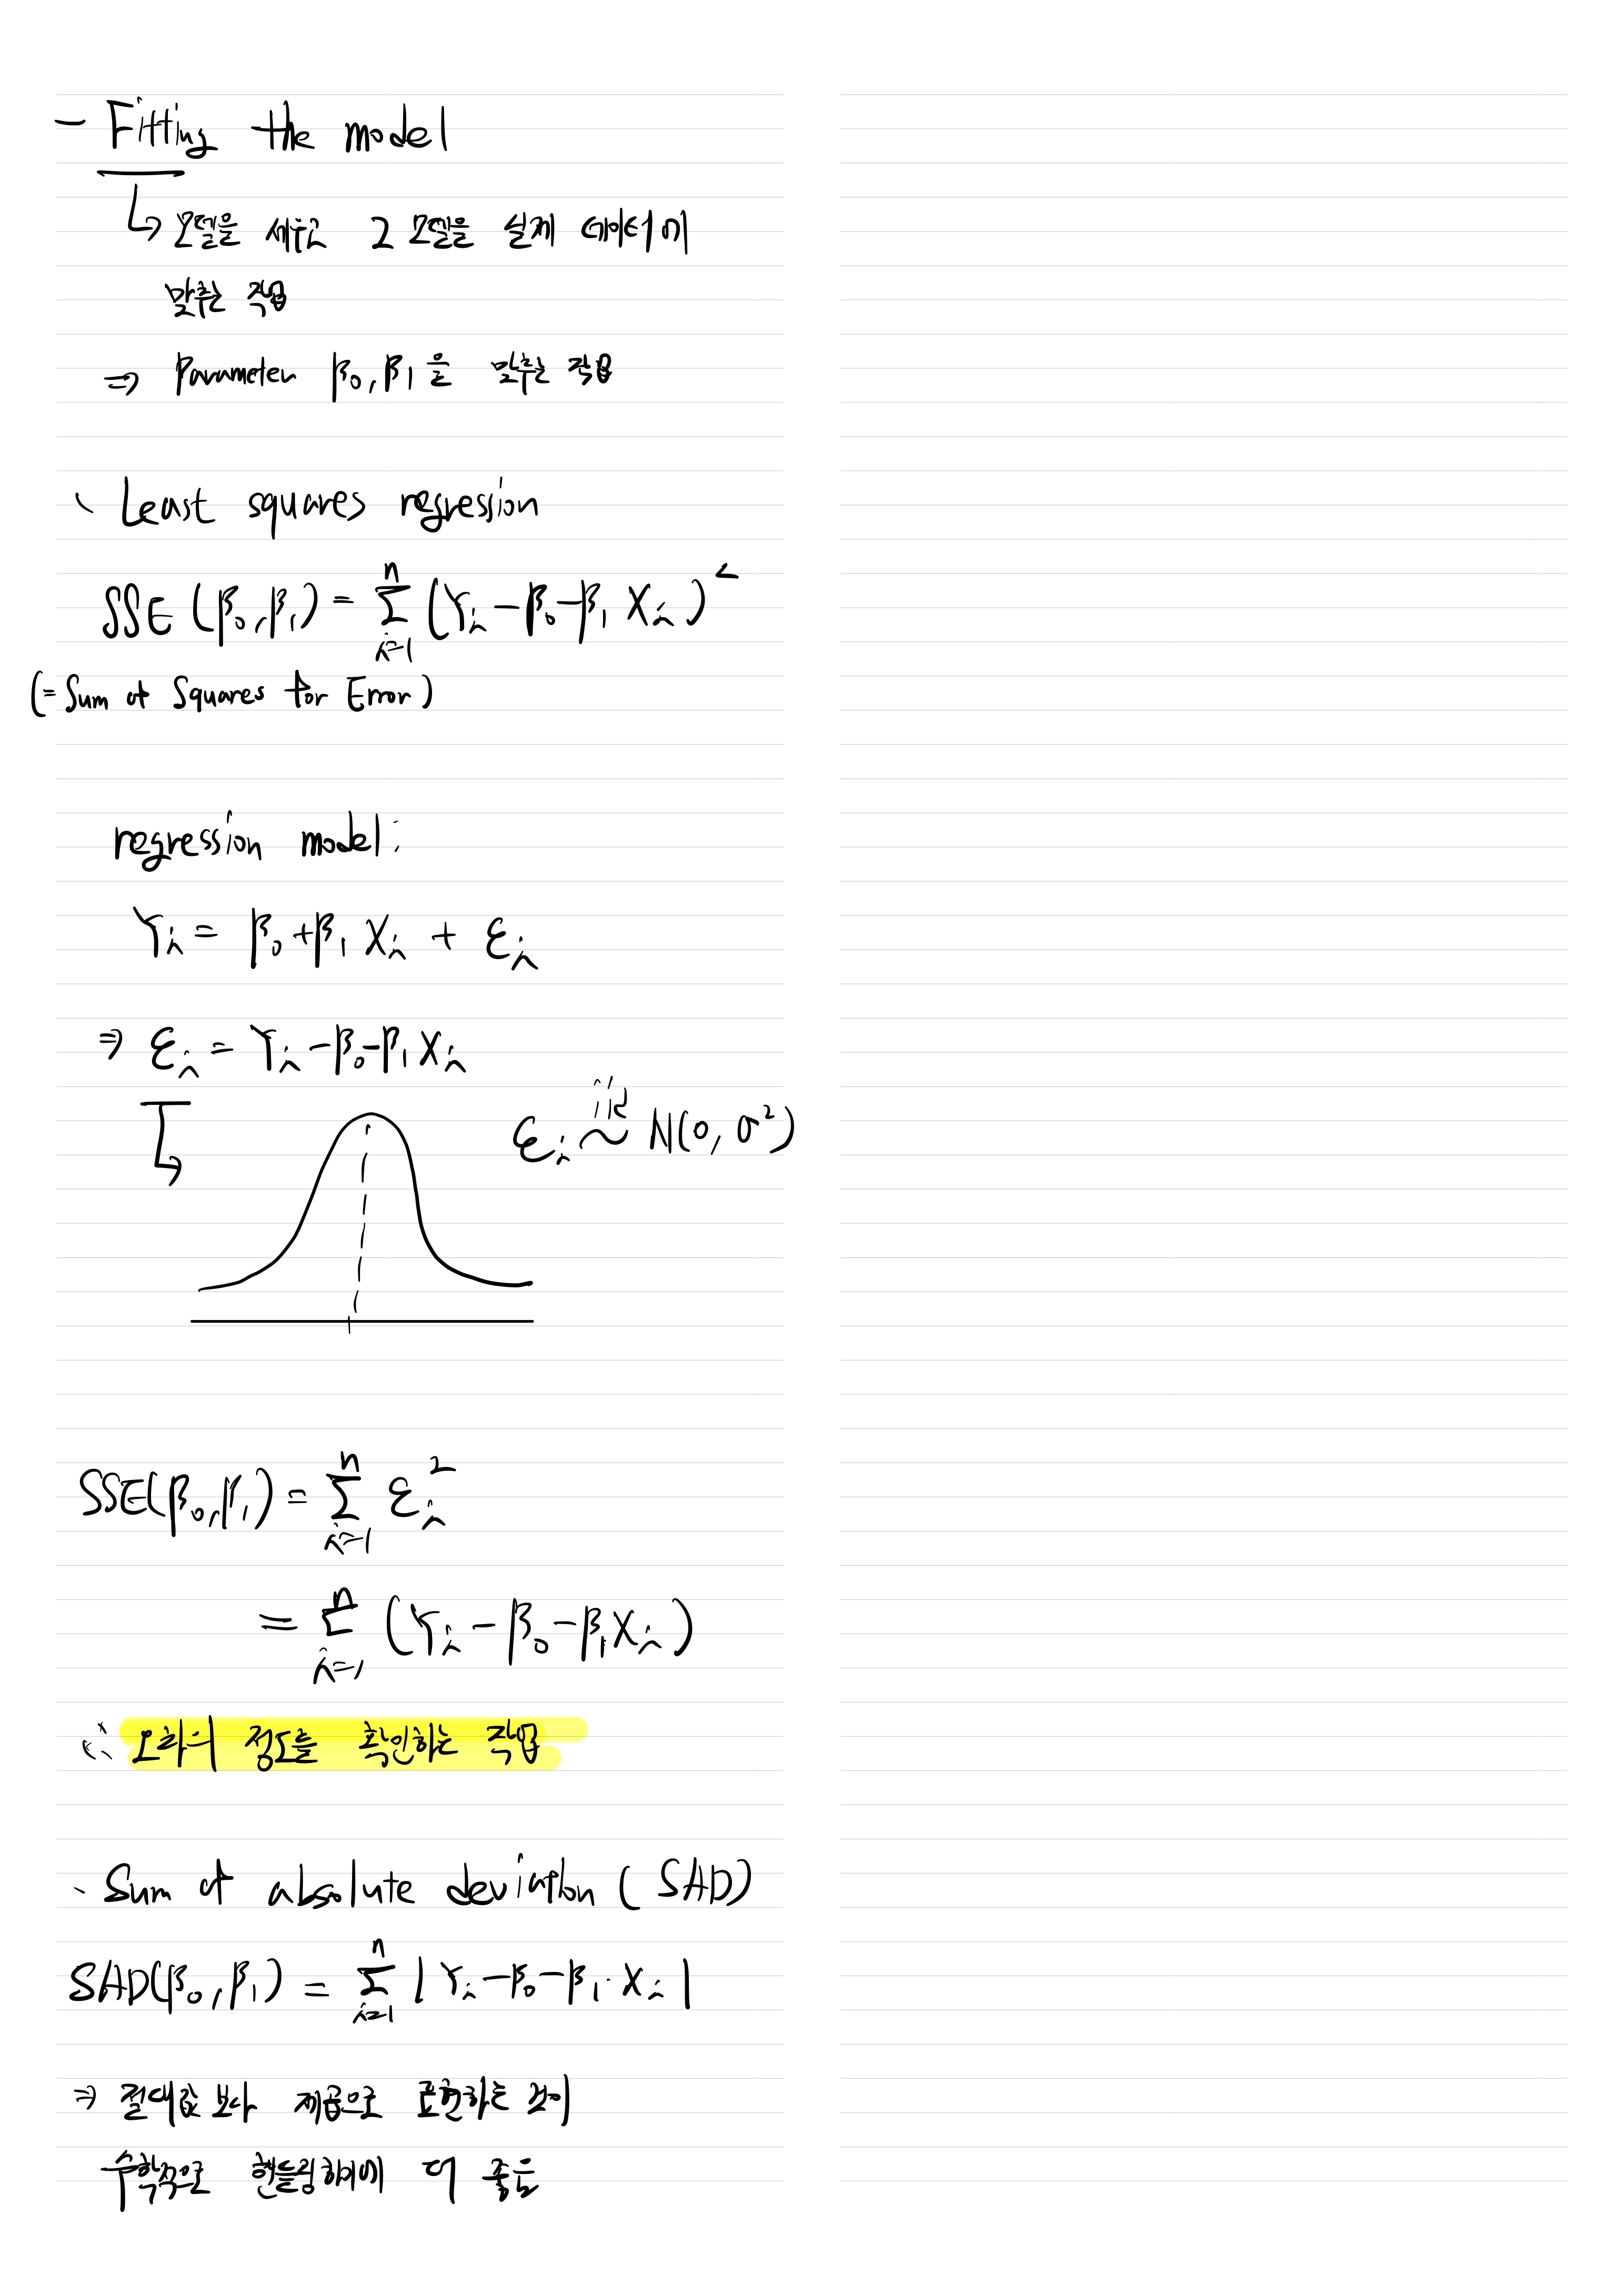 - Fitting the model
↳ 모델을 세우고 그 모델을 실제 데이터에
맞추는 작업
⇒ Parameter β₀, β₁을 맞추는 작업
· Least squares regression
SSE (β₀, β₁) = Σ_{i=1}^{n} (Yᵢ - β₀ - β₁ Xᵢ)²
(= Sum of Squares for Error)
regression model:
Yᵢ = β₀ + β₁ Xᵢ + εᵢ
⇒ εᵢ = Yᵢ - β₀ - β₁ Xᵢ
εᵢ ~ⁱⁱᵈ N(0, σ²)
SSE(β₀, β₁) = Σ_{i=1}^{n} εᵢ²
= Σ_{i=1}^{n} (Yᵢ - β₀ - β₁ Xᵢ)
∴ 오차의 정도를 확인하는 작업
· Sum of absolute deviation (SAD)
SAD(β₀, β₁) = Σ_{i=1}^{n} | Yᵢ - β₀ - β₁ · Xᵢ |
⇒ 절대값 보다 제곱으로 표현하는 것이
수학적으로 핸들링하기에 더 좋음